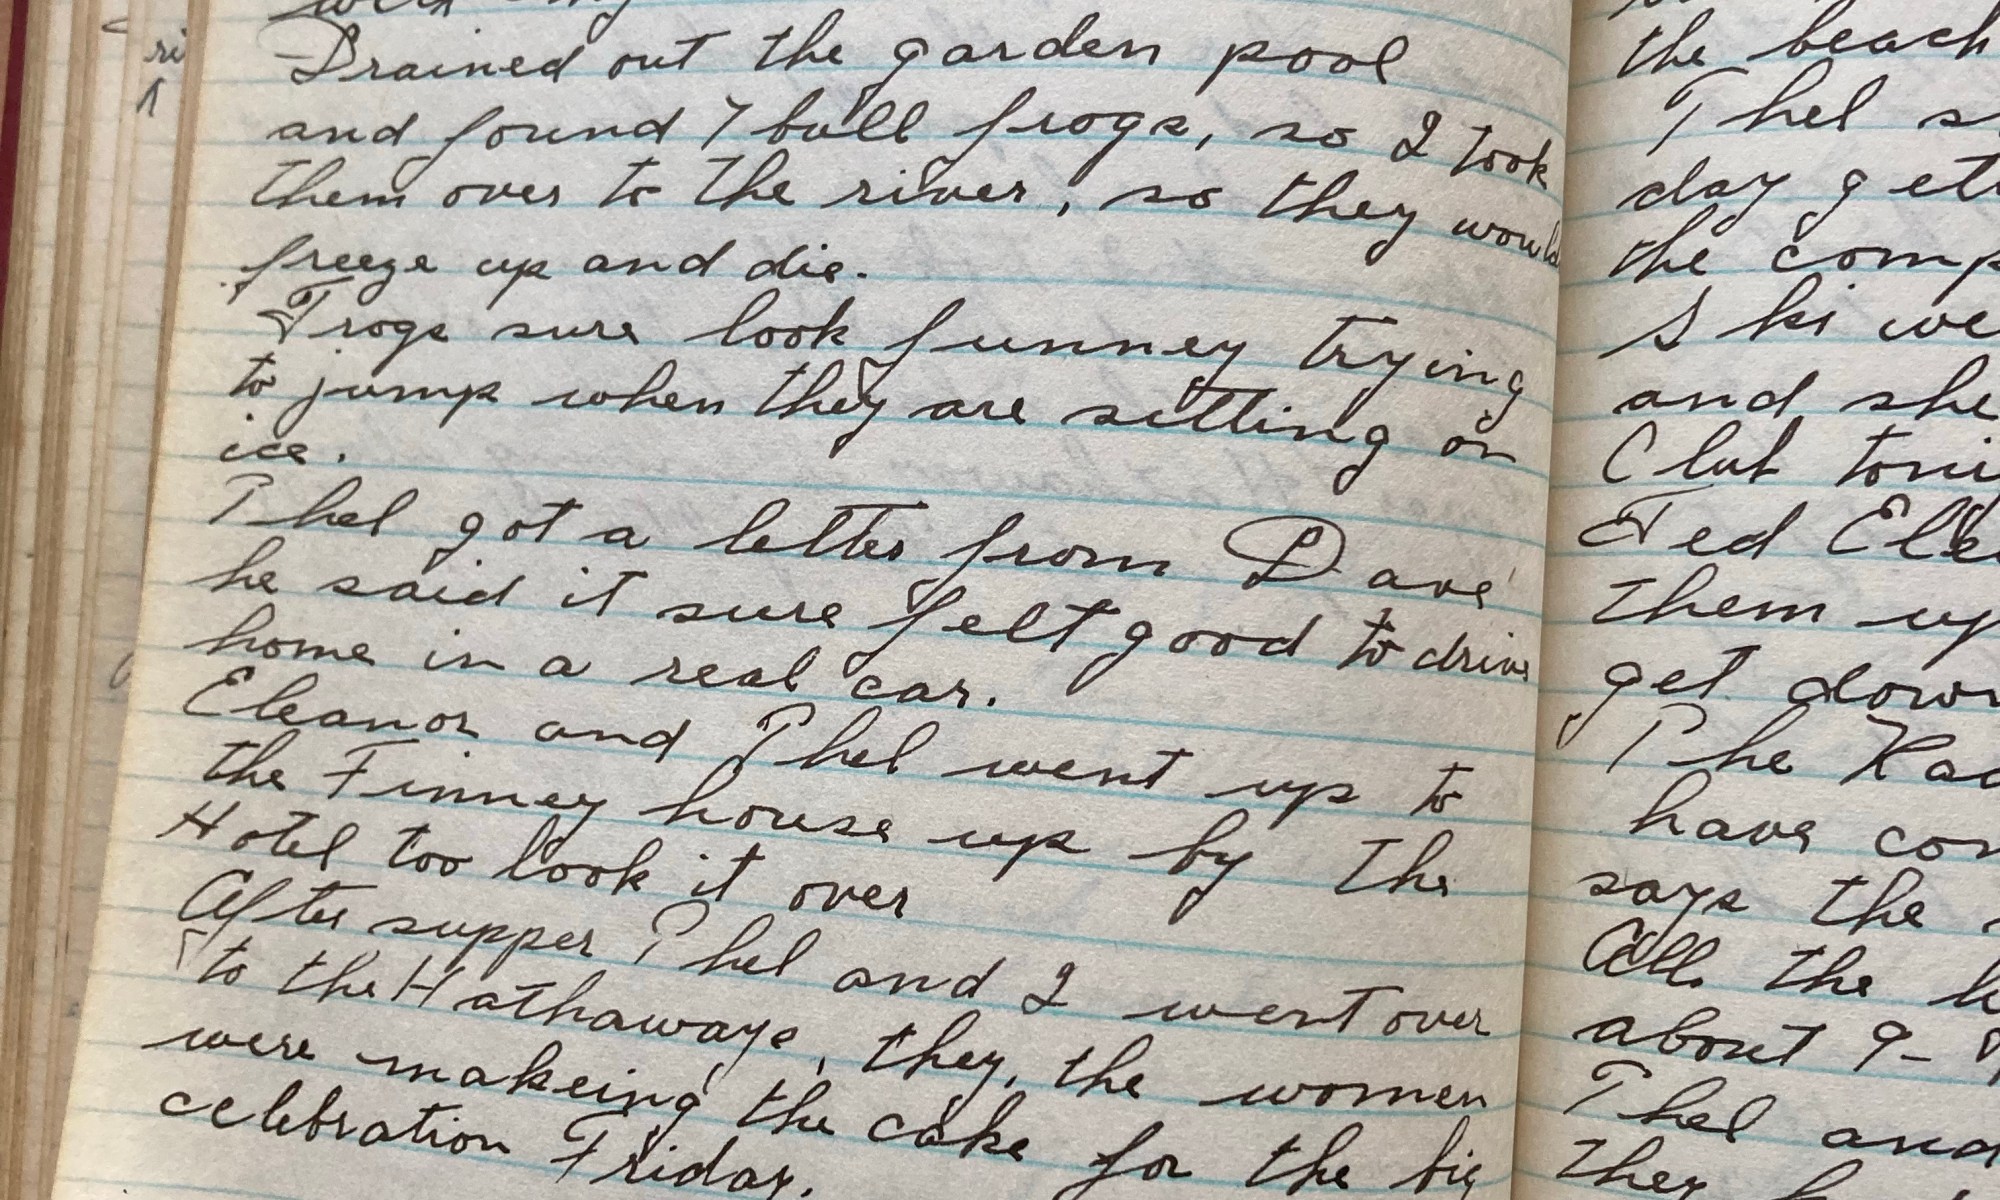 Drained out the garden pool
and found 7 bull frogs, so I took
them over to the river, so they would
freeze up and die.
Frogs sure look funney trying
to jump when they are sitting on
ice.
Phel got a letter from Dave
he said it sure felt good to drive
home in a real car.
Eleanor and Phel went up to
the Finney house up by the
Hotel too look it over
After supper Phel and I went over
to the Hathaways, they, the women
were makeing the cake for the big
celebration Friday.
the beach
Phel
day
the
Ski
and she
Club
Ted
them up
get down
The
have
says the
All the
about 9-
Phel and
they